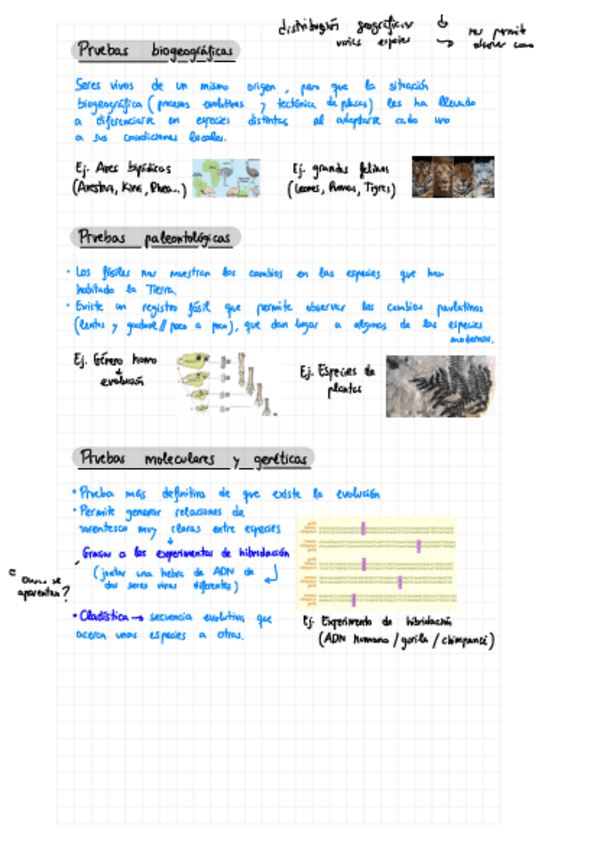 distribución geográfica
varias especies
nos permit
Pruebas biogeográficas
Seres vivos de un mismo origen, pero que la situación
biogeográfica (procesos evolutivos y tectónica de placas) les ha llevado
a diferenciarse en especies distintas al adaptarse cada uno
a sus condiciones locales.
Ej. Aves
(Avestruz, Kiwi, Rhea...)
Ej. grandes felinos
(Leones, Pumas, Tigres)
Pruebas paleontológicas
• Los fósiles nos muestran los cambios en las especies que han
habitado la Tierra.
• Existe un registro fósil que permite observar los cambios paulatinos
(lentos y gradual // poco a poco), que dan lugar a algunas de las especies
modernas.
Ej. Género homo
evolución
Ej. Especies de
plantas
Pruebas moleculares y genéticas
• Prueba más definitiva de que existe la evolución
• Permite generar relaciones de
parentesco muy claras entre especies
Gracias a los experimentos de hibridación
(juntar una hebra de ADN de
dos seres vivos diferentes)
se
aparentan?
• Cladística → secuencia evolutiva que
acerca unas especies a otras.
Ej. Experimento de hibridación
(ADN humano / gorila / chimpancé)